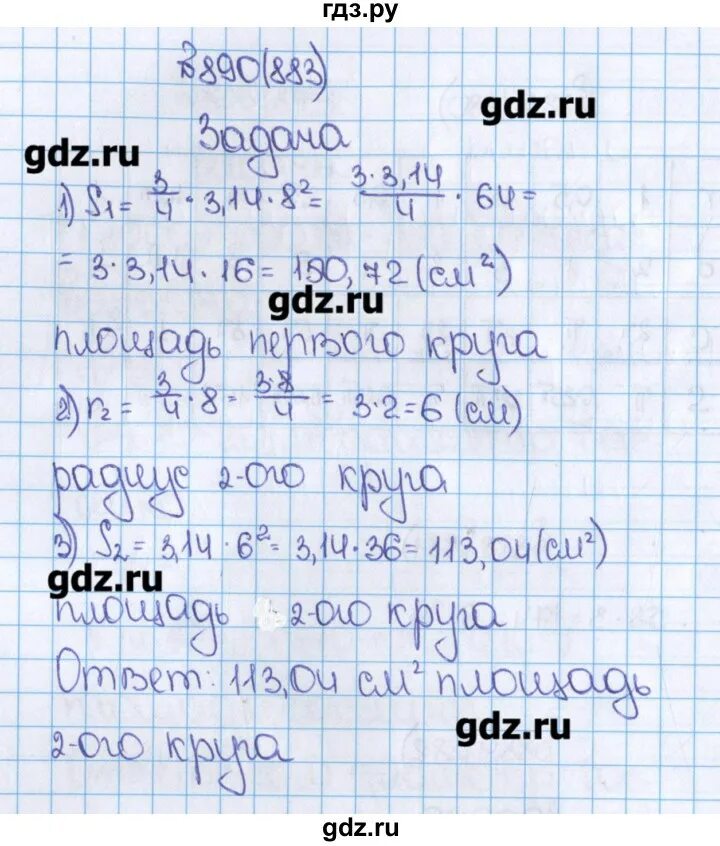 гдз.ру
№890(883)
gdz.ru
Задача
gdz.ru
1) S₁ = 3/4 · 3,14 · 8² = 3·3,14/4 · 64 =
= 3·3,14·16 = 150,72 (см²)
gdz.ru
площадь первого круга
2) r₂ = 3/4 · 8 = 3·8/4 = 3·2=6 (см)
радиус 2-ого круга
3) S₂ = 3,14 · 6² = 3,14·36 = 113,04 (см²)
gdz.ru
площадь 2-ого круга
Ответ: 113,04 см² площадь
gdz.ru
2-ого круга
gdz.ru